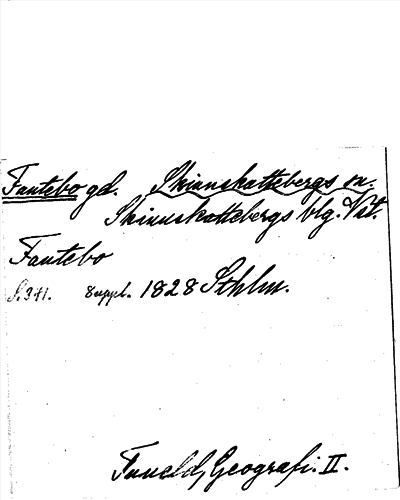 Fantebo gd. Skinnskattebergs sn.
Skinnskattebergs blg. Vstm.
Fantebo
S. 341. Suppl. 1828 Sthlm.
Tuneld, Geografi. II.